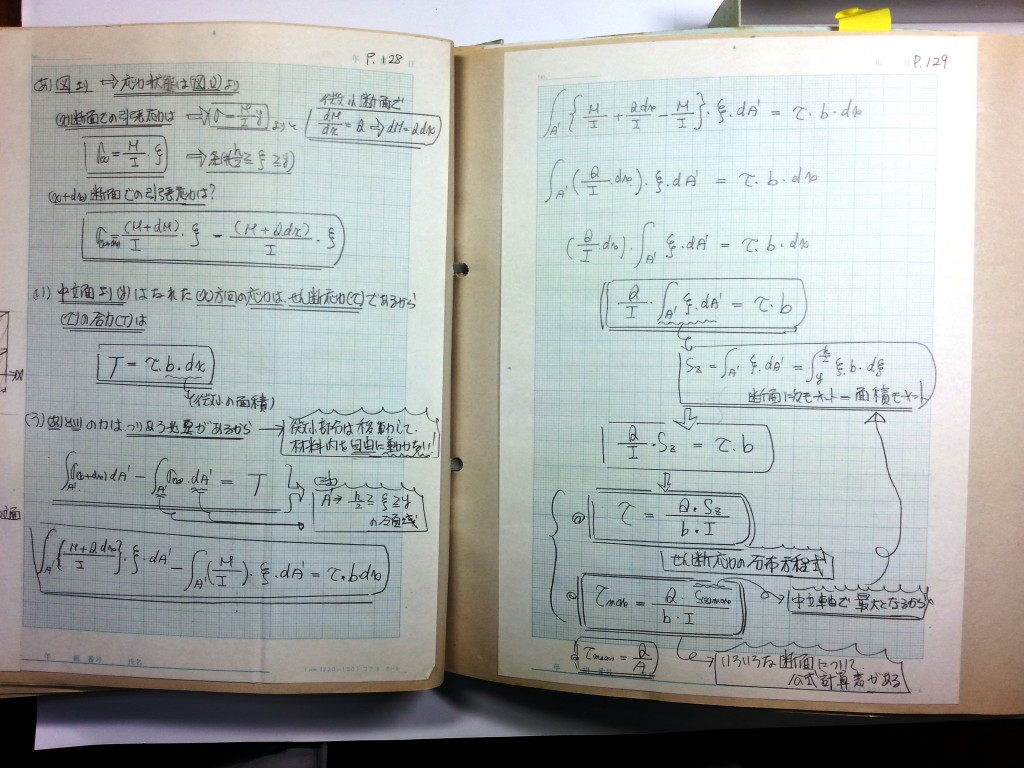 P.128
(あ)図より ⇒応力状態は図(1)より
(x)断面での引張応力は ⇒ σ=M/I・y より
微小断面で
dM/dx = Q ⇒ dM=Qdx
σ(x) = M/I・ξ ⇒ (h/2≧ξ≧y)
(x+dx)断面での引張応力は?
(M+dM)/I・ξ - (M+Qdx)/I・ξ
(い) 中立面より(y)はなれた(x)方向の応力は、せん断応力(τ)であるから
(τ)の合力(T)は
T = τ.b.dx
(微小の面積)
(う) (あ)と(い)の力はつりあう必要があるから →
微小部分は移動して
材料内を自由に動かない!
∫A' σ(x+dx)dA' - ∫A' σ(x).dA' = T
A'→ h/2≧ξ≧y
∫A'{M+Qdx/I}・ξ・dA' - ∫A'(M/I)・ξ・dA' = τ・bdx
P.129
∫A'{M/I + Qdx/I - M/I}・ξ・dA' = τ・b・dx
∫A'(Q/I・dx)・ξ・dA' = τ・b・dx
(Q/I・dx)・∫A' ξ・dA' = τ・b・dx
Q/I・∫A' ξ・dA' = τ・b
Sz=∫A' ξ・dA' = ∫y h/2 ξ・b・dξ
断面一次モーメント=面積モーメント
Q/I・Sz = τ・b
τ = Q・Sz/b・I
せん断応力の分布方程式
τmax = Q・S(z)max/b・I
中立軸で最大となるから
τmean = Q/A
いろいろな断面について
公式計算表がある